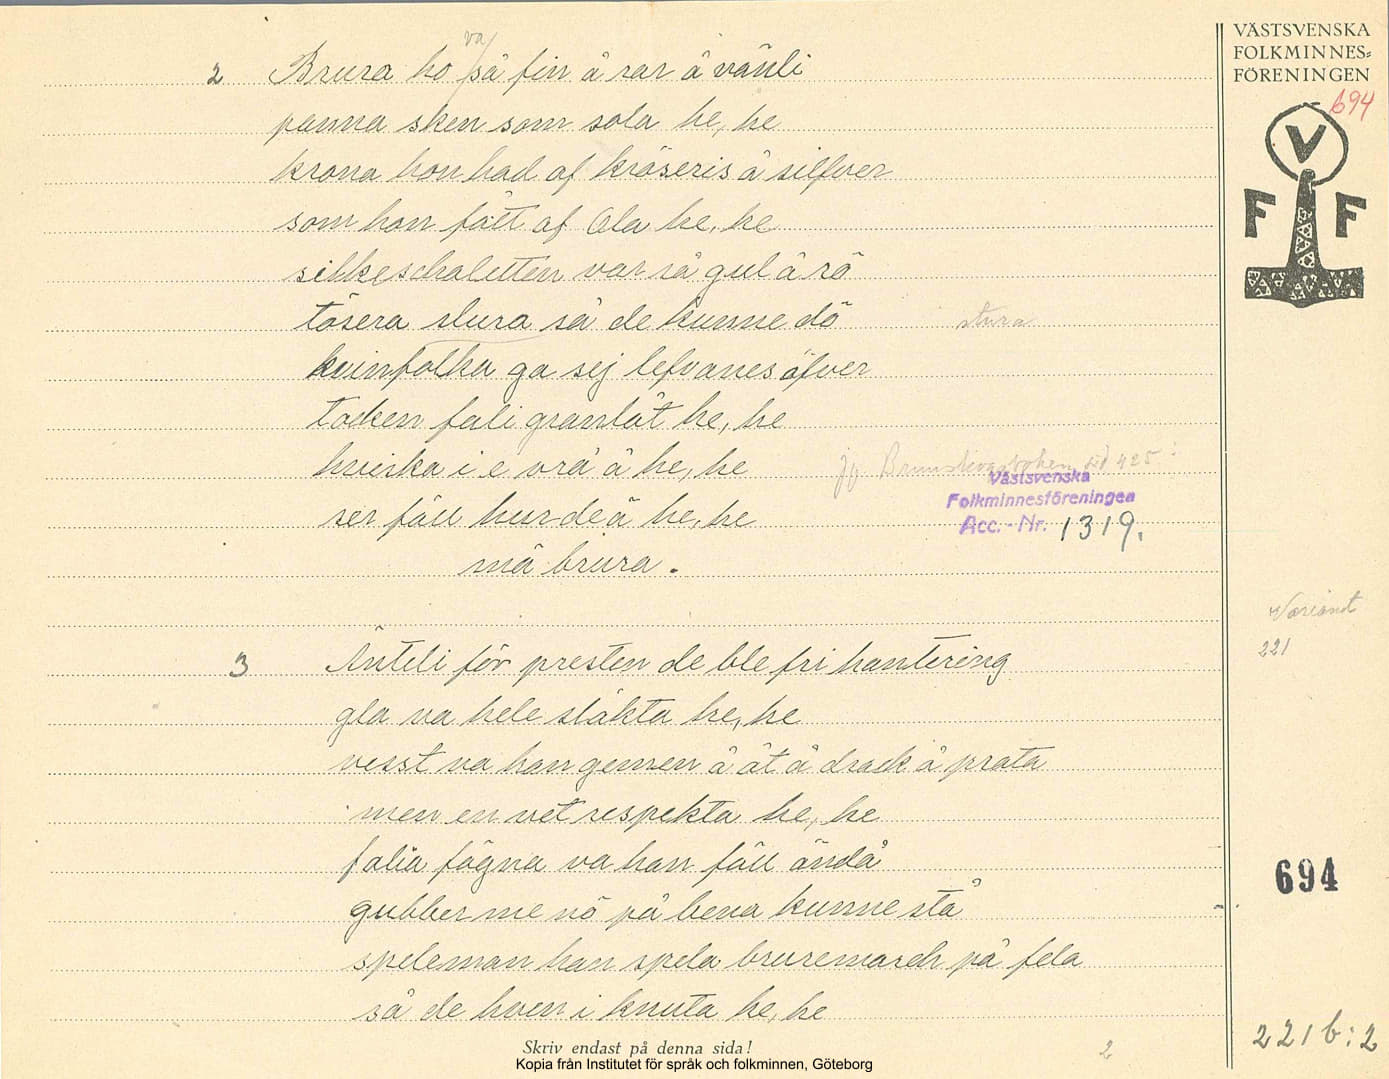 VÄSTSVENSKA
FOLKMINNES-
FÖRENINGEN
694
V
F F
va
2 Brura ho så fin å rar å vänli
panna sken som sola he, he
krona hon had af kråseris å silfver
som hon fått af Ola he, he
silkeschaletten var så gul å rö
tösera slura så de kunne dö
stura
kvinfolka ga sej lefvanes öfver
tocken fali granlåt he, he
hvirka i e vrå å he, he
jfr Brunskogsboken sid 425
ser fäll hur de ä he, he
mä brura.
Västsvenska
Folkminnesföreningen
Acc. - Nr. 1319.
Variant
221
3 Änteli för presten de ble fri hantering
gla va hele släkta he, he
visst va han gemen å åt å drack å prata
men en vet respekta he, he
falia fägna va han fäll ändå
gubber me nö på bena kunne stå
speleman han spela bruremarch på fela
så de hven i knuta he, he
694
221 b:2
2
Skriv endast på denna sida!
Kopia från Institutet för språk och folkminnen, Göteborg